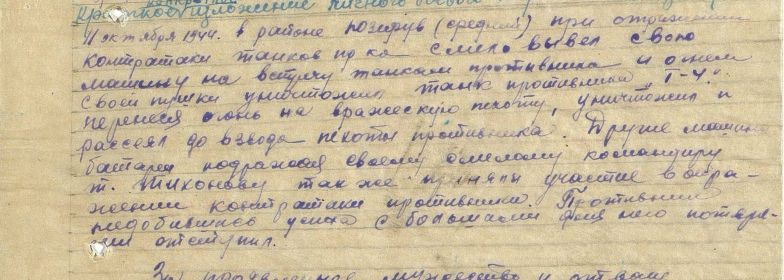 Краткое изложение личного боевого
11 октября 1944. в районе позефув (средний) при отражении
контратаки танков пр-ка смело вывел свою
машину на встречу танкам противника и огнем
своей пушки уничтожил танк противника "Т-4".
перенеся огонь на вражескую пехоту, уничтожил и
рассеял до взвода пехоты противника. Другие машины
батареи подражая своему смелому командиру
т. Тихонову также приняли участие в отра-
жении контратаки противника. Противник
недобившись успеха с большими для него потеря-
ми отступил.
За проявленное мужество и отвагу